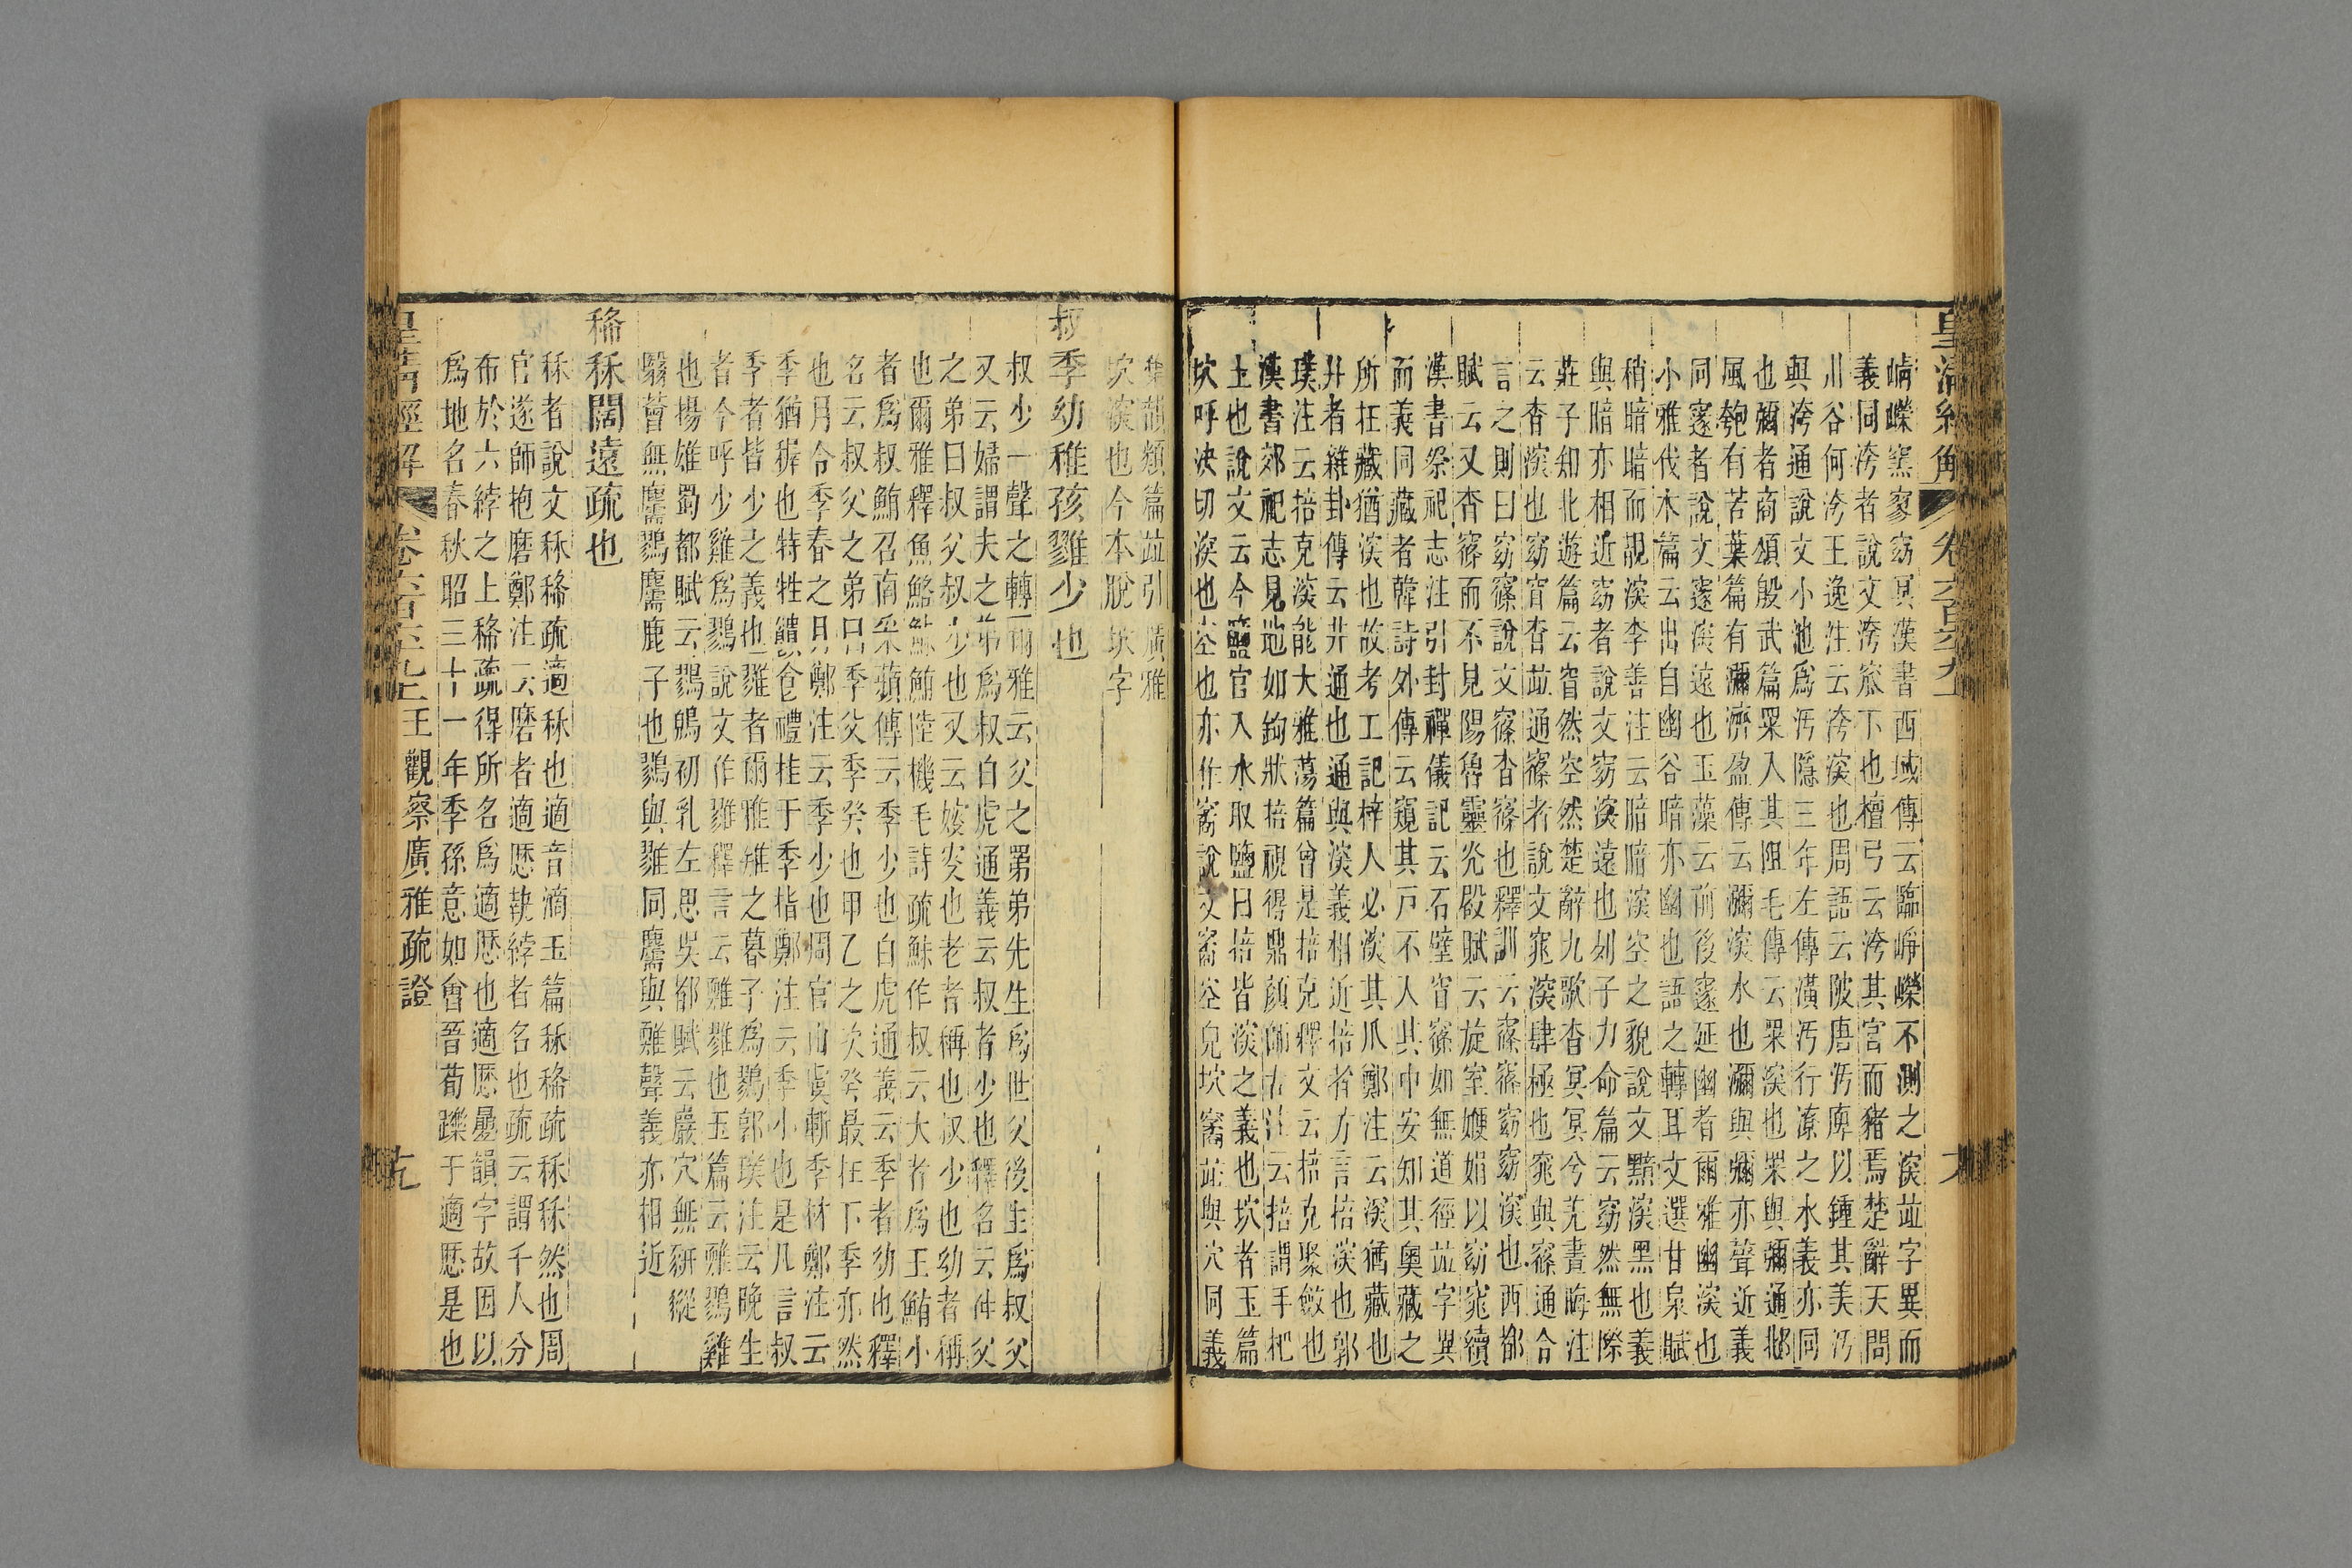 皇清經解 卷六百六十九上
崝嶸窯寥窈冥漢書西域傳云臨崢嶸不測之深竝字異而
義同洿者說文洿窊下也檀弓云洿其宮而豬焉楚辭天問
川谷何洿王逸注云洿深也周語云陂唐汚庳以鍾其美汚
與洿通說文小池爲汚隱三年左傳潢汚行潦之水義亦同
也彌者商頌殷武篇罙入其阻毛傳云罙深也罙與彌通邶
風匏有苦葉篇有瀰濟盈傳云瀰深水也瀰與彌亦聲近義
同邃者說文邃深遠也玉藻云前後邃延幽者爾雅幽深也
小雅伐木篇云出自幽谷暗亦幽也語之轉耳文選甘泉賦
稍暗暗而靚深李善注云暗暗深空之貌說文黯深黑也義
與暗亦相近窈者說文窈深遠也列子力命篇云窈然無際
莊子知北遊篇云窅然空然楚辭九歌杳冥冥兮羌晝晦注
云杳深也窈窅杳竝通窱者說文窕深肆極也窕與窱通合
言之則曰窈窱說文窱杳窱也釋訓云窱窱窈窈深也西都
賦云又杳窱而不見陽魯靈光殿賦云旋室㛹娟以窈窕續
漢書祭祀志注引封禪儀記云石壁窅窱如無道徑竝字異
而義同藏者韓詩外傳云窺其戸不入其中安知其奧藏之
所在藏猶深也故考工記梓人必深其爪鄭注云深猶藏也
井者雜卦傳云井通也通與深義相近掊者方言掊深也郭
璞注云掊克深能大雅蕩篇曾是掊克釋文云掊克聚斂也
漢書郊祀志見地如鉤狀掊視得鼎顏師古注云掊謂手杷
土也說文云今鹽官入水取鹽曰掊皆深之義也坎者玉篇
坎呼決切深也空也亦作窩說文窩空皃坎窩竝與穴同義
集韻類篇竝引廣雅
坎深也今本脫坎字
叔季幼稚孩雞少也
叔少一聲之轉爾雅云父之罤弟先生爲世父後生爲叔父
又云婦謂夫之弟爲叔白虎通義云叔者少也釋名云仲父
之弟曰叔父叔少也又云嫂叟也老者稱也叔少也幼者稱
也爾雅釋魚鮥鮛鮪陸機毛詩疏鮛作叔云大者爲王鮪小
者爲叔鮪召南采蘋傳云季少也白虎通義云季者幼也釋
名云叔父之弟曰季父季癸也甲乙之次癸最在下季亦然
也月令季春之月鄭注云季少也周官山虞斬季材鄭注云
季猶穉也特牲饋食禮挂于季指鄭注云季小也是凡言叔
季者皆少之義也雞者爾雅雉之暮子爲鷚郭璞注云晚生
者今呼少雞爲鷚說文作雞釋言云雞雞也玉篇云雞鷚雞
也揚雄蜀都賦云鷚鴳初乳左思吳都賦云巖穴無豜豵
翳薈無麢鷚麢鹿子也鷚與雞同麢與雞聲義亦相近
稀秝闊遠疏也
秝者說文秝稀疏適秝也適音滴玉篇秝稀疏秝秝然也周
官遂師抱磨鄭注云磨者適厯執綍者名也疏云謂千人分
布於六綍之上稀疏得所名爲適厯也適厯曡韻字故因以
爲地名春秋昭三十一年季孫意如會晉荀躒于適厯是也
皇清經解 卷六百六十九上 王觀察廣雅疏證 九